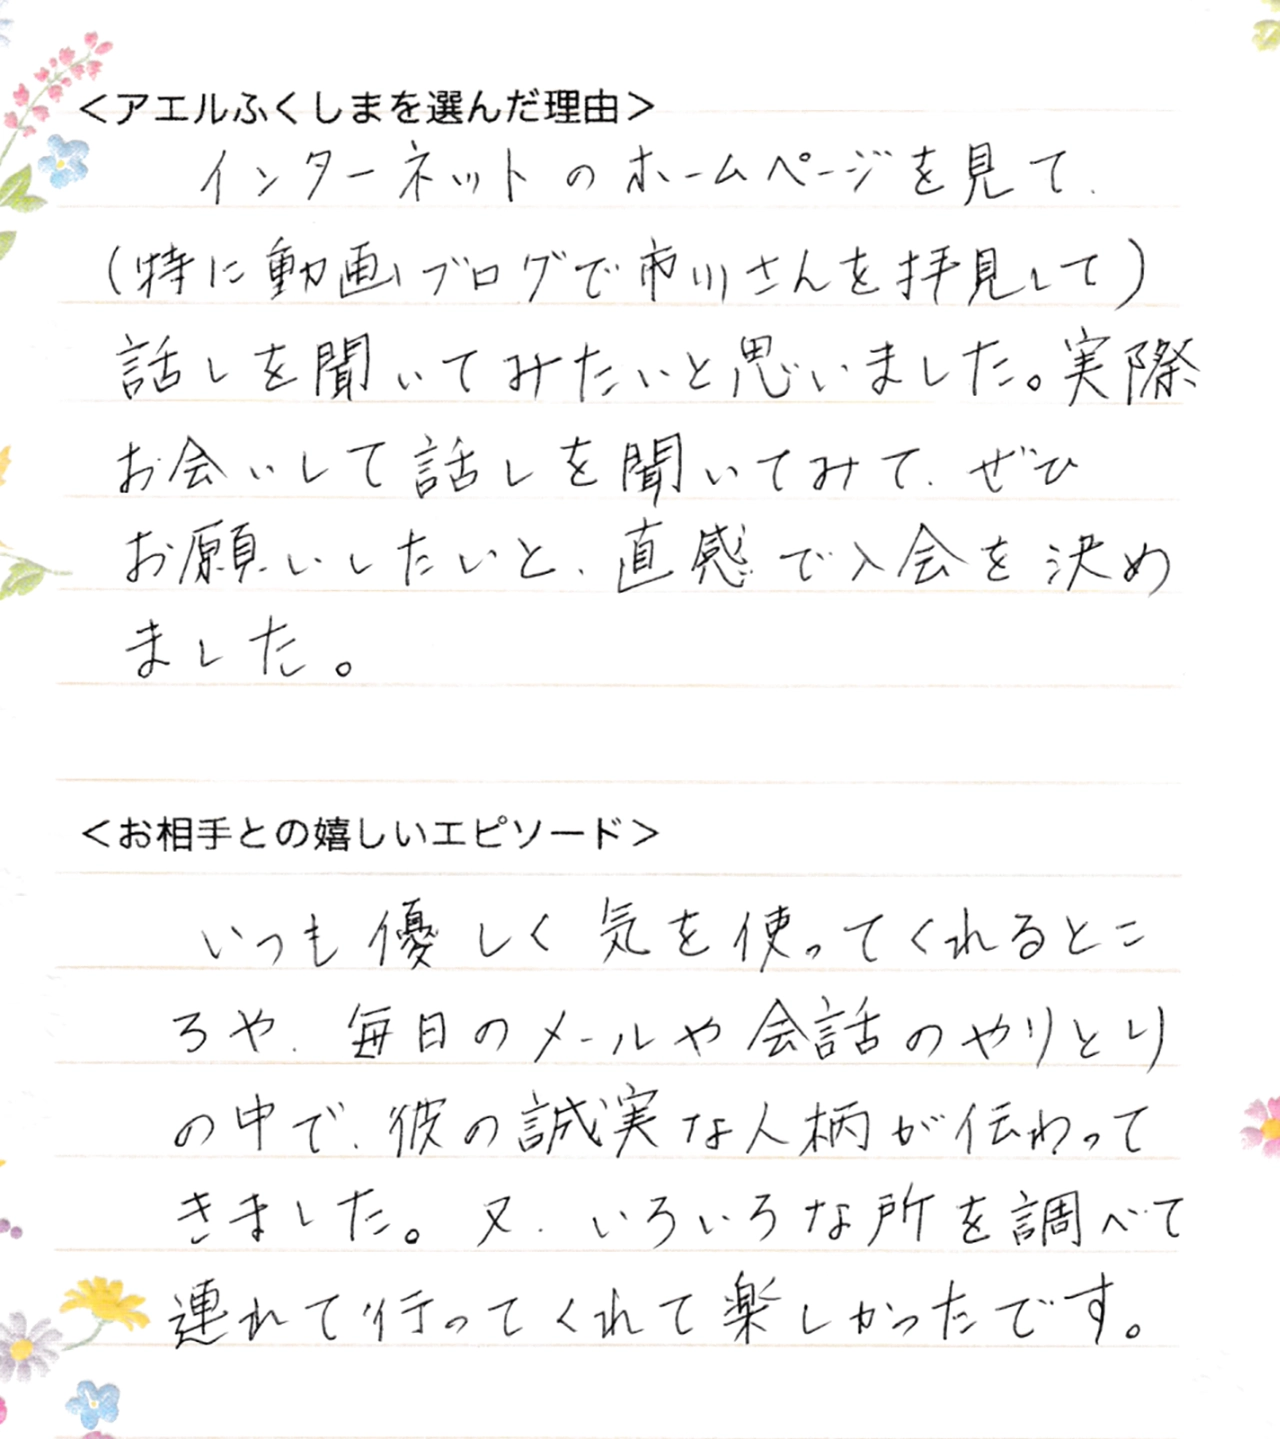 ＜アエルふくしまを選んだ理由＞
インターネットのホームページを見て、
(特に動画ブログで市川さんを拝見して)
話しを聞いてみたいと思いました。実際
お会いして話しを聞いてみて、ぜひ
お願いしたいと、直感で入会を決め
ました。
＜お相手との嬉しいエピソード＞
いつも優しく気を使ってくれるとこ
ろや、毎日のメールや会話のやりとり
の中で、彼の誠実な人柄が伝わって
きました。又、いろいろな所を調べて
連れて行ってくれて楽しかったです。